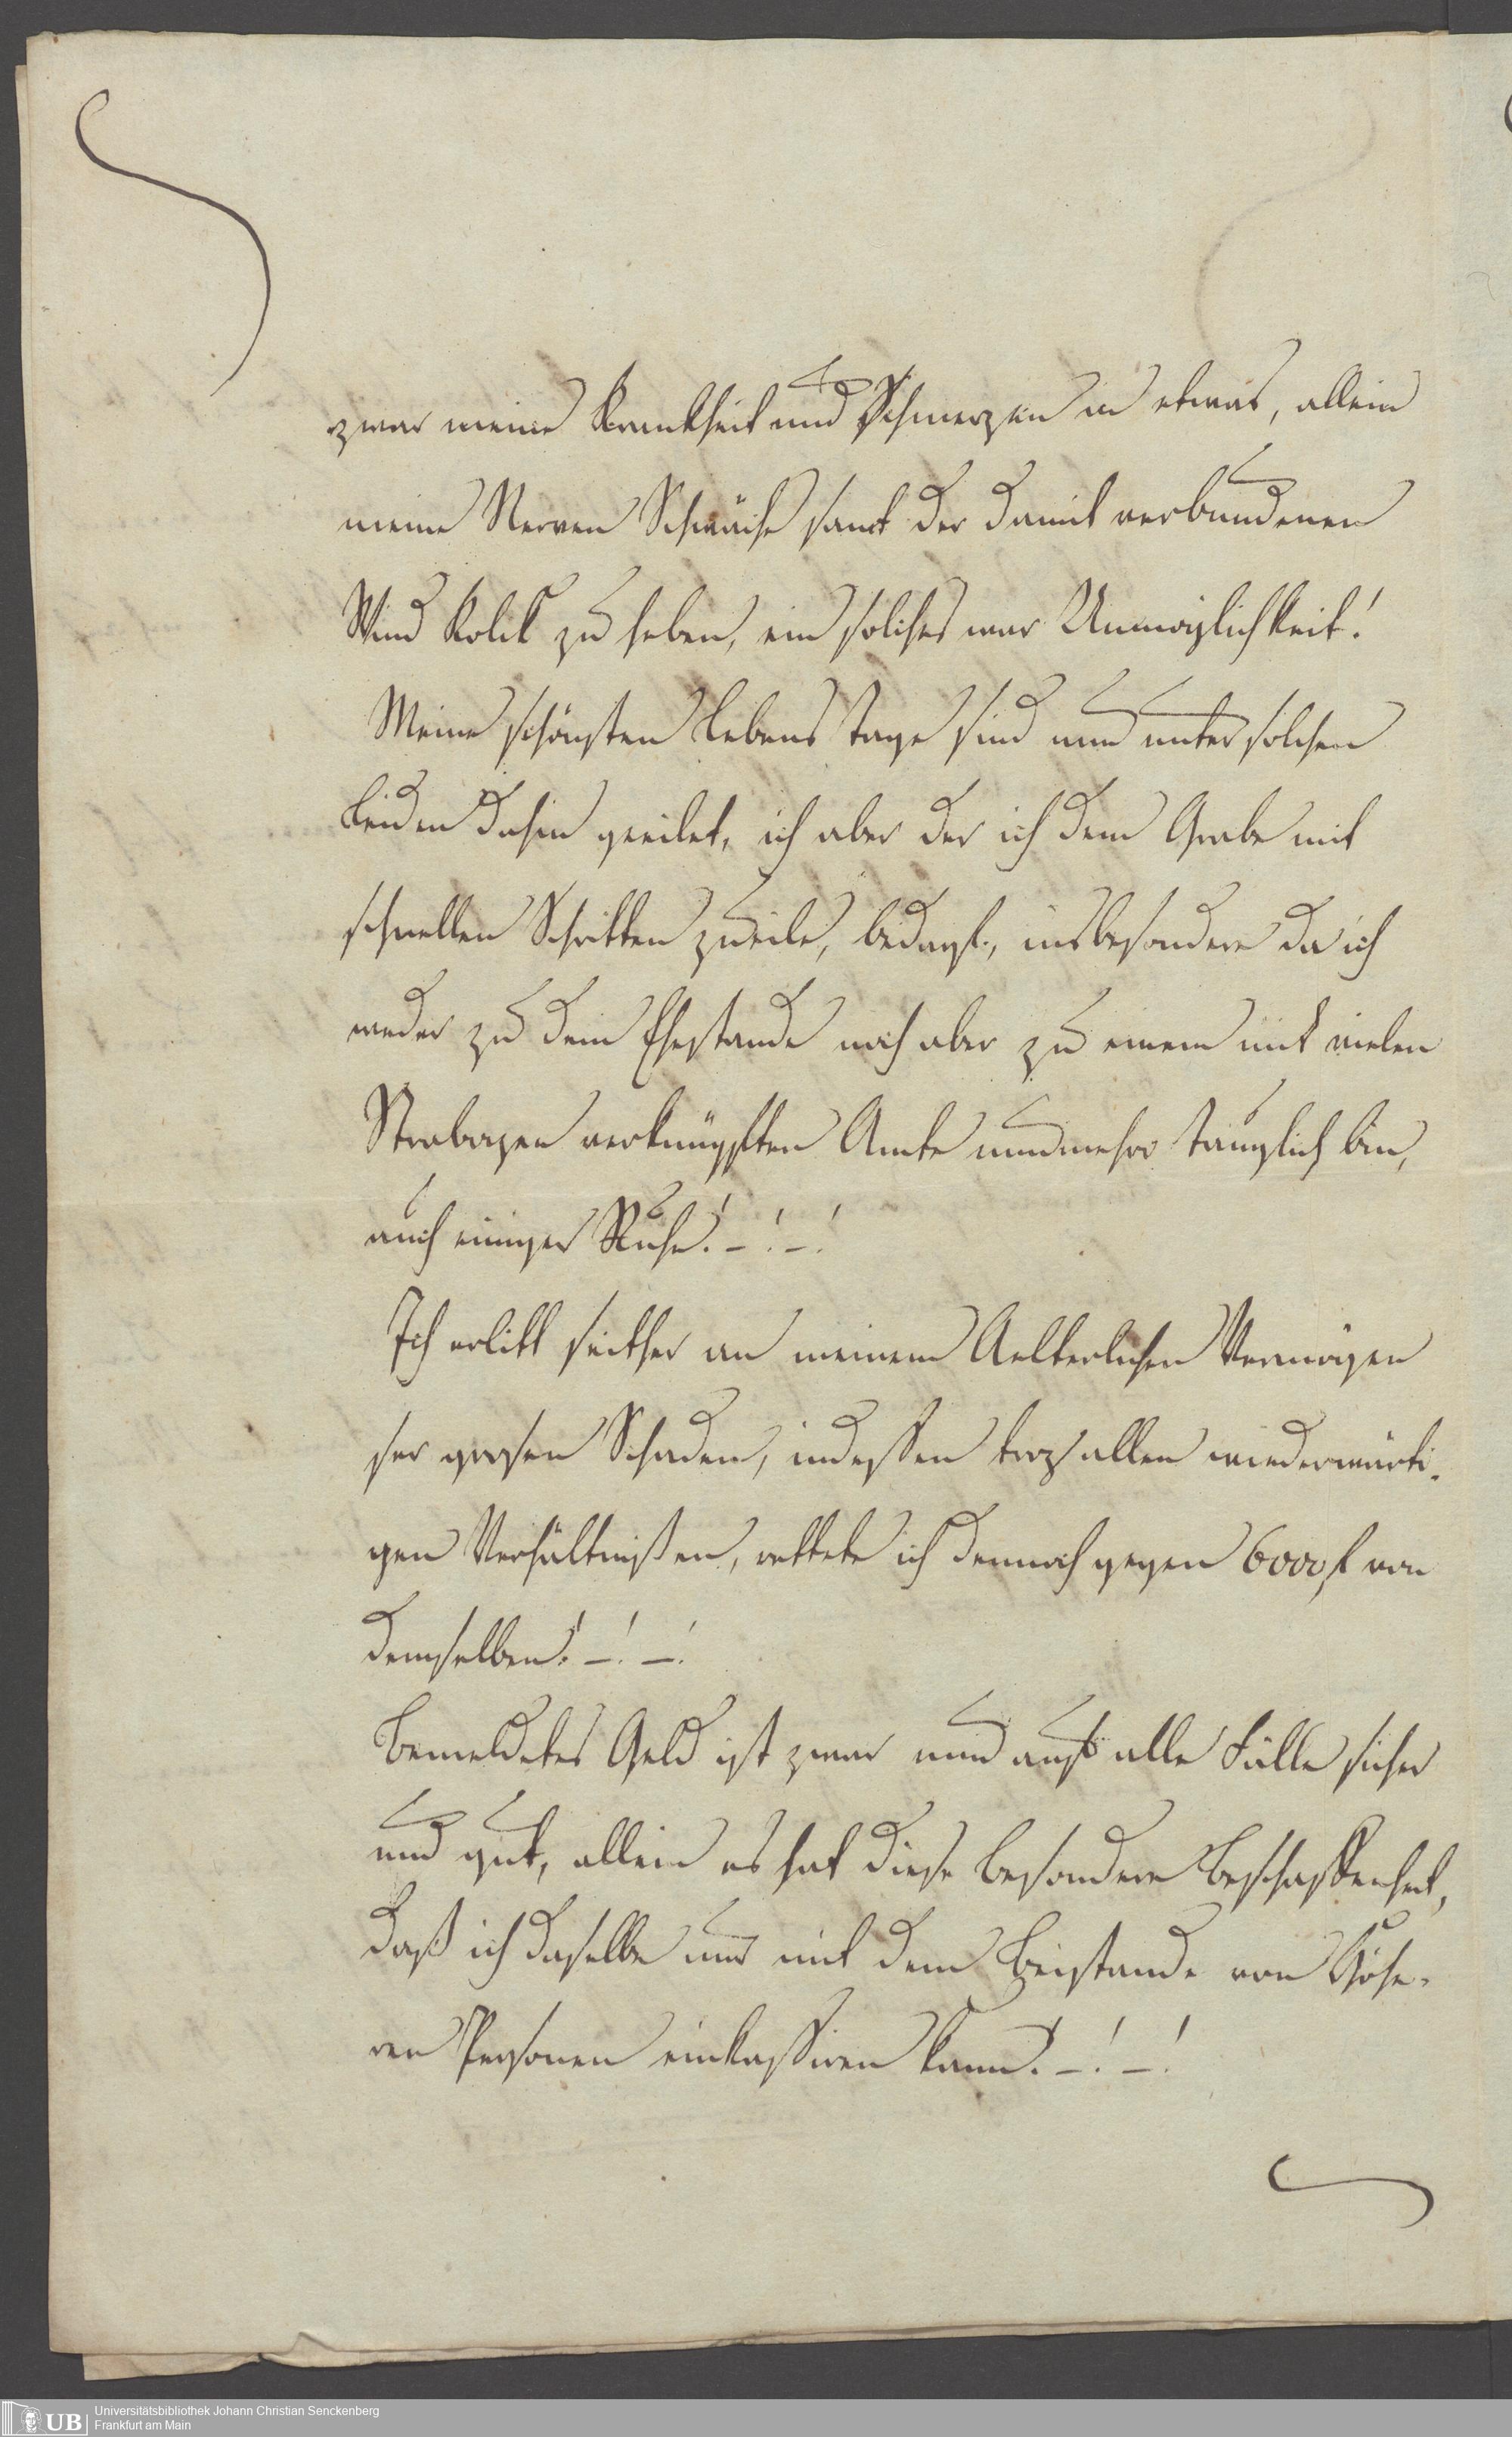 zwar meine Krankheit und Schmerzen in etwas, allein
meine Nerven Schwäche samt der damit verbundenen
Wind Kolik zu heben, ein solches war Unmöglichkeit!
Meine schönsten Lebens Tage sind nun unter solchen
Leiden dahin geeilet, ich aber der ich dem Grabe mit
schnellen Schritten zueile, bedarf, insbesondere da ich
weder zu dem Ehestande noch aber zu einem mit vielen
Strabazen verknüpften Amte nunmehro tauglich bin,
auch einiger Ruhe! – ! – !
Ich erlitt seither an meinem Aelterlichen Vermögen
ser grosen Schaden, indessen troz allen wiederwärti-
gen Verhältnißen, rettete ich dennoch gegen 6000 f von
demselben! – ! – !
Bemeldetes Geld ist zwar nun auf alle Fälle sicher
und gut, allein es hat diese besondere Beschaffenheit,
daß ich daselbe nur mit dem Beistande von Höhe-
ren Personen einkassiren kann! – ! – !
UB
Universitätsbibliothek Johann Christian Senckenberg
Frankfurt am Main